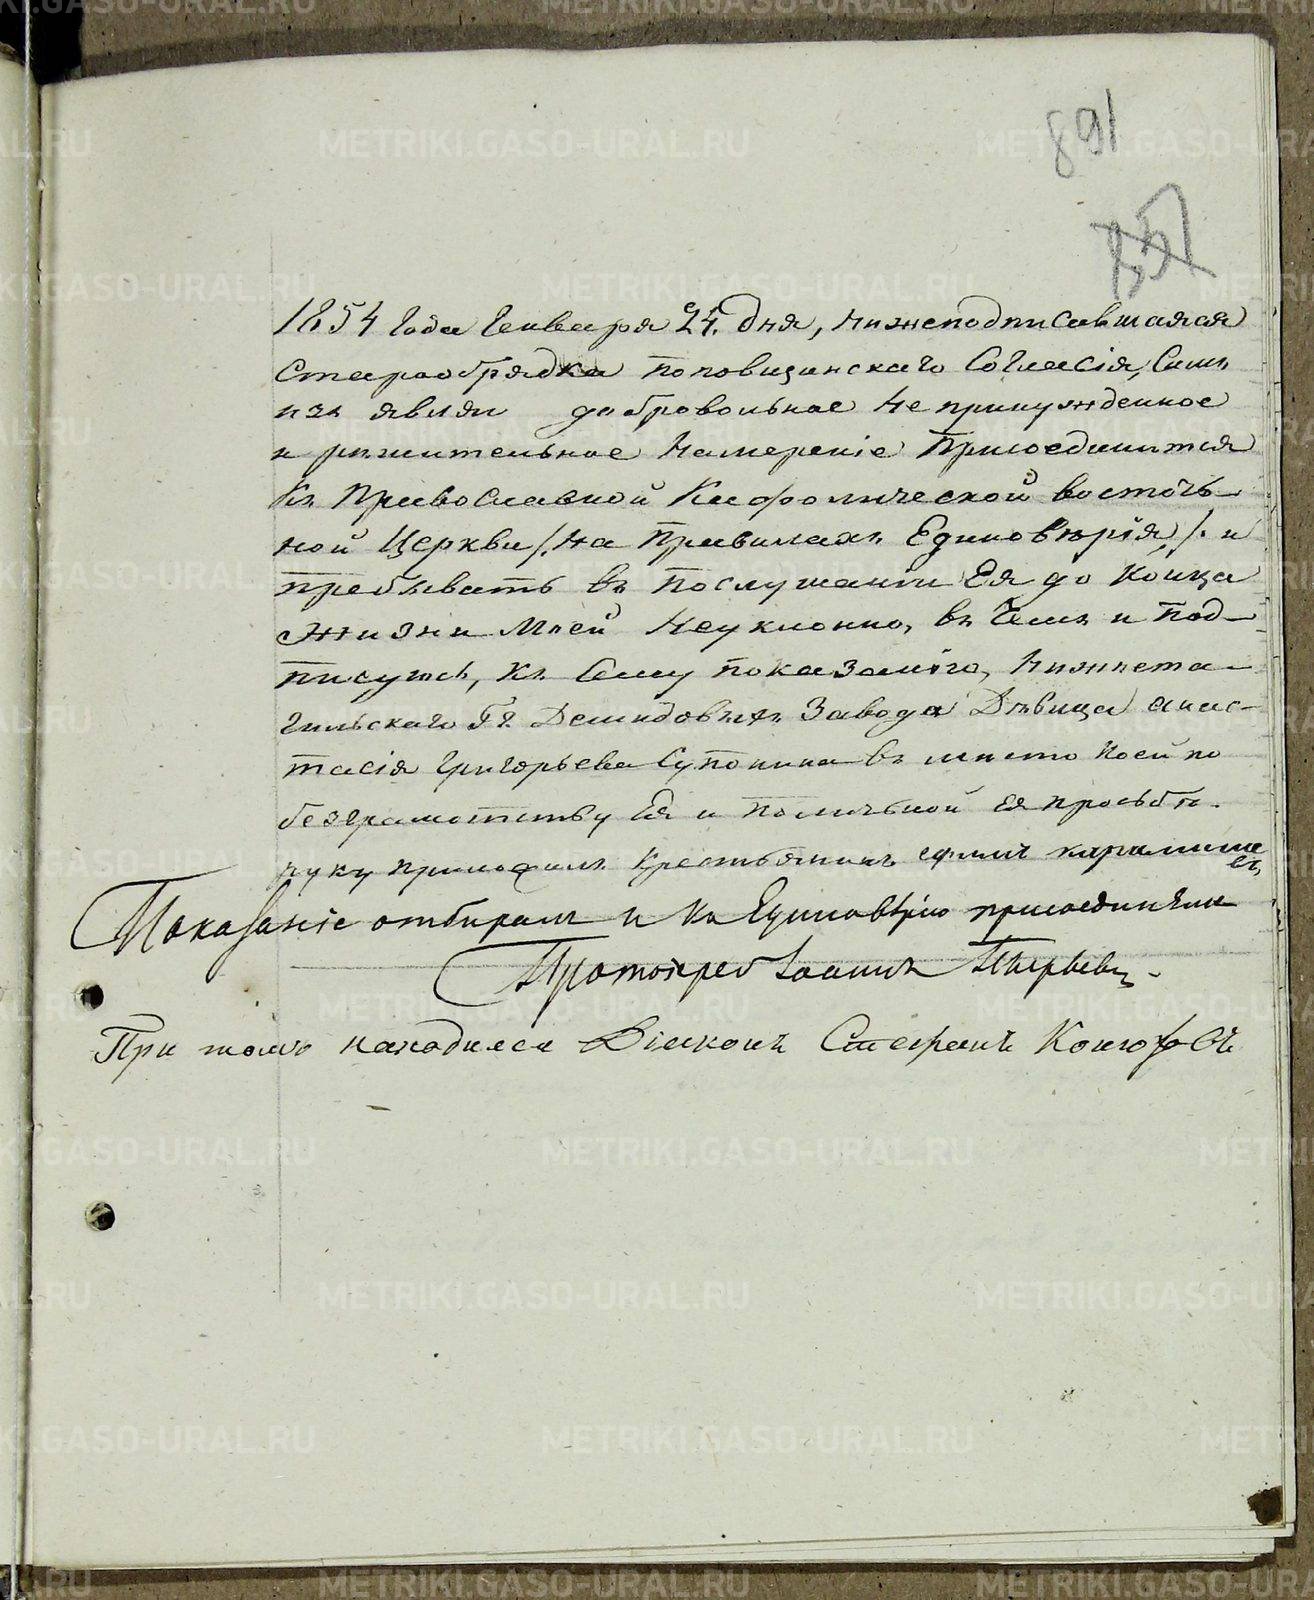 891
857
1854 Года Генваря 24. дня, нижеподписавшаяся
старообрядка поповщинскаго Согласія, Симъ
изъявляя добровольное не принужденное
и решительное намереніе присоединится
къ Православной Кафолической восточь-
ной Церкви /. на правилахъ Единовѣрія /. и
пребывать въ послушаніи Ея до конца
жизни моей неуклонно, въ чемъ и под-
писуюсь, къ Сему показанію, нижнета-
гильскаго Гг. Демидовыхъ завода Дѣвица анас-
тасія Григорьева Супонина въ место коей по
безграмотству Ея и поличьной ея прозьбѣ.
руку приложилъ крестьянинъ
Показаніе отбиралъ и къ Единовѣрію присоединялъ
Протоіерей Іоаннъ
При томъ находился Діаконъ Стефанъ Конюховъ